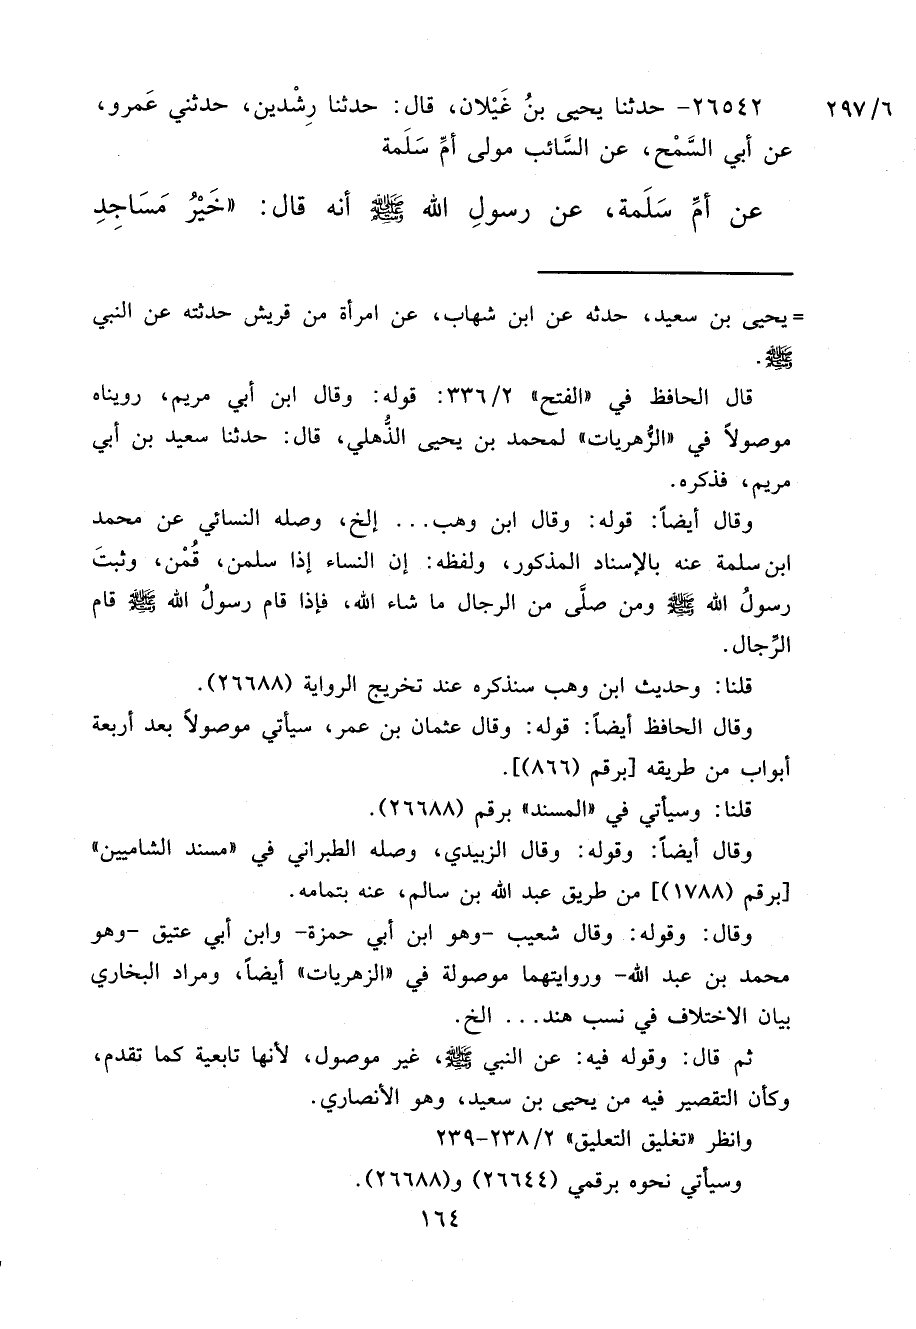 ٢٩٧/٦ ٢٦٥٤٢- حدثنا يحيى بنُ غَيْلان، قال: حدثنا رِشْدين، حدثني عَمرو،
عن أبي السَّمْح، عن السَّائب مولى أمِّ سَلَمة
عن أمِّ سَلَمة، عن رسولِ الله ﷺ أنه قال: «خَيْرُ مَسَاجِدِ
= يحيى بن سعيد، حدثه عن ابن شهاب، عن امرأة من قريش حدثته عن النبي
ﷺ.
قال الحافظ في «الفتح» ٣٣٦/٢: قوله: وقال ابن أبي مريم، رويناه
موصولاً في «الزُّهريات» لمحمد بن يحيى الذُّهلي، قال: حدثنا سعيد بن أبي
مريم، فذكره.
وقال أيضاً: قوله: وقال ابن وهب... إلخ، وصله النسائي عن محمد
ابن سلمة عنه بالإسناد المذكور، ولفظه: إن النساء إذا سلمن، قُمْن، وثبتَ
رسولُ الله ﷺ ومن صلَّى من الرجال ما شاء الله، فإذا قام رسولُ الله ﷺ قام
الرِّجال.
قلنا: وحديث ابن وهب سنذكره عند تخريج الرواية (٢٦٦٨٨).
وقال الحافظ أيضاً: قوله: وقال عثمان بن عمر، سيأتي موصولاً بعد أربعة
أبواب من طريقه [برقم (٨٦٦)].
قلنا: وسيأتي في «المسند» برقم (٢٦٦٨٨).
وقال أيضاً: وقوله: وقال الزبيدي، وصله الطبراني في «مسند الشاميين»
[برقم (١٧٨٨)] من طريق عبد الله بن سالم، عنه بتمامه.
وقال: وقوله: وقال شعيب -وهو ابن أبي حمزة- وابن أبي عتيق -وهو
محمد بن عبد الله- وروايتهما موصولة في «الزهريات» أيضاً، ومراد البخاري
بيان الاختلاف في نسب هند... الخ.
ثم قال: وقوله فيه: عن النبي ﷺ، غير موصول، لأنها تابعية كما تقدم،
وكأن التقصير فيه من يحيى بن سعيد، وهو الأنصاري.
وانظر «تغليق التعليق» ٢٣٨/٢-٢٣٩
وسيأتي نحوه برقمي (٢٦٦٤٤) و(٢٦٦٨٨).
١٦٤